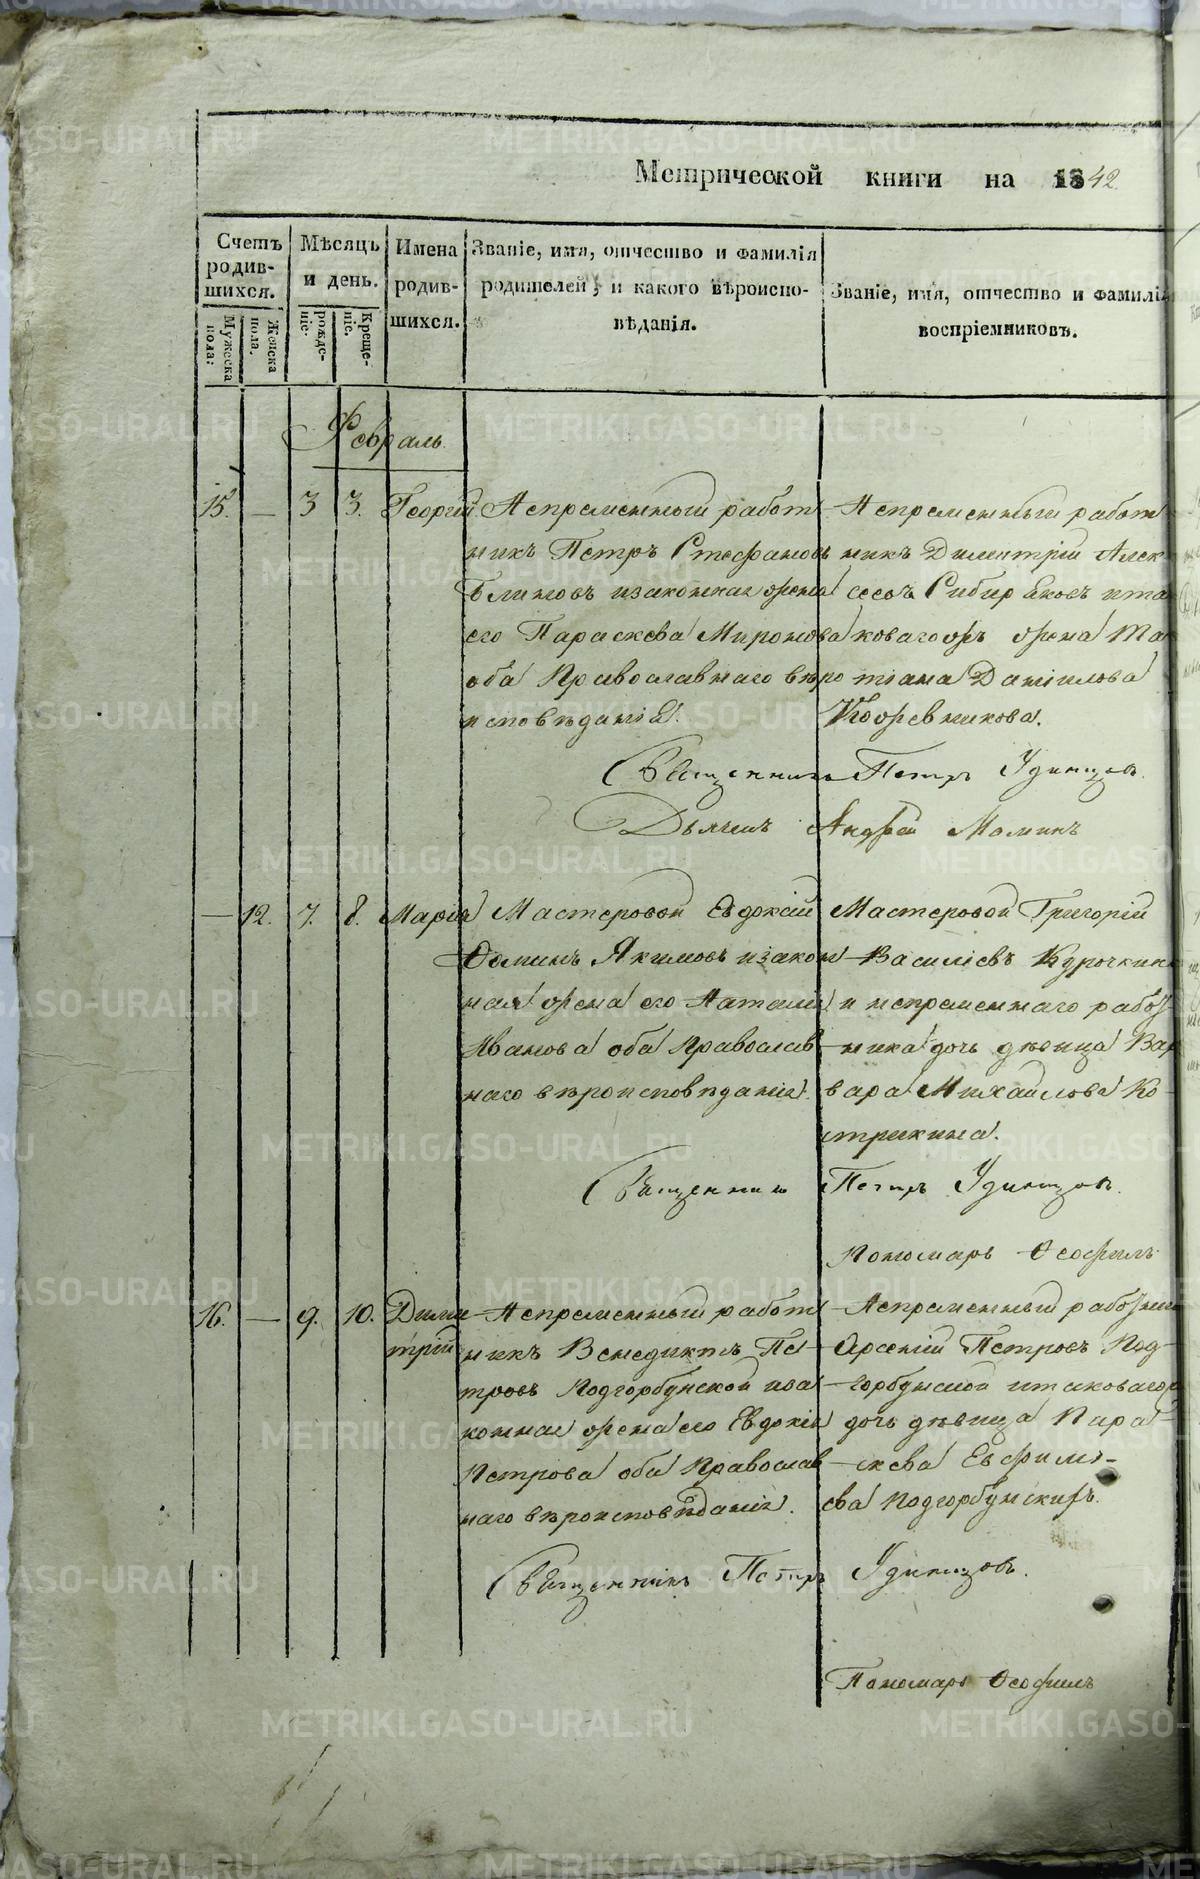 Метрической книги на 1842
Счетъ родив-шихся.
Мѣсяцъ и день.
Имена родив-шихся.
Званіе, имя, отчество и фамилія
родителей, и какого вѣроиспо-
вѣданія.
Званіе, имя, отчество и фамилія
воспріемниковъ.
Мужеска пола.
Женска пола.
рожде-ніе.
Креще-ніе.
Февраль
15. — 3 3. Георгій Непременный работ
никъ Петръ Стефановъ
Блиновъ изаконная жена
его Параскева Миронова
оба Православнаго веро
исповѣданія.
Непременный работ
никъ Димитрій Алек
сеевъ Сибиряковъ ита
коваго жъ жена Та
тіана Даніилова
Кожевникова.
Священникъ Петръ Удинцовъ.
Дьячекъ Андрей Маминъ
— 12. 7. 8. Марія Мастеровой Евдокій
Фоминъ Якимовъ изакон
ная жена его Наталія
Иванова оба Православ
наго вѣроисповѣданія.
Мастеровой Григорій
Василіевъ Курочкинъ
и непременнаго работ
ника дочь дѣвица Вар
вара Михайлова Ко-
стрикина.
Священникъ Петръ Удинцовъ.
Пономарь Ѳеофилъ
16. — 9. 10. Дими
трій
Непременный работ
никъ Венедиктъ Пе-
тровъ Подгорбунской иза
конная жена его Евдокія
Петрова оба Православ
наго вѣроисповѣданія.
Непременный работник
Арсеній Петровъ Под-
горбунской итаковагож
дочь дѣвица Пара-
скева Евфимі-
ева Подгорбунскихъ.
Священникъ Петръ Удинцовъ.
Пономарь Ѳеофилъ
METRIKI.GASO-URAL.RU